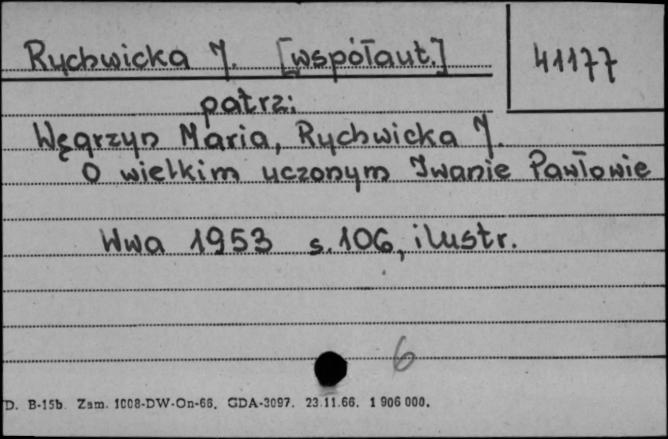 Rychwicka J. [współaut.] 41177
patrz:
Węgrzyn Maria, Rychwicka J.
O wielkim uczonym Iwanie Pawłowie
Wwa 1953 s. 106, ilustr.
6
D. B-15b. Zam. 1008-DW-On-66. GDA-3097. 23.11.66. 1 906 000.